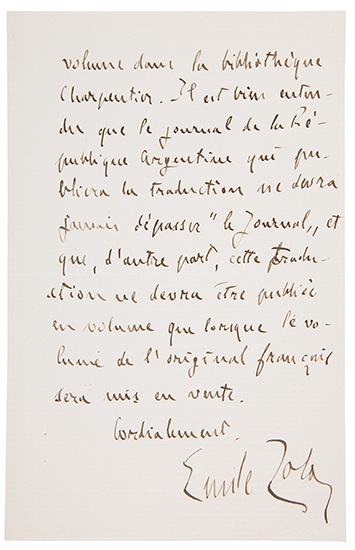 volume dans la bibliothèque
Charpentier. Il est bien enten-
du que le journal de la Ré-
publique Argentine qui pu-
bliera la traduction ne devra
jamais dépasser "le Journal,, et
que, d'autre part, cette tradu-
ction ne devra être publiée
en volume que lorsque le vo-
lume de l'original français
sera mis en vente.
Cordialement.
Emile Zola